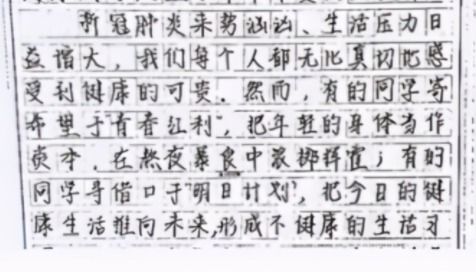 新冠肺炎来势汹汹、生活压力日
益增大，我们每个人都无比真切地感
受到健康的可贵。然而，有的同学寄
希望于青春红利，把年轻的身体当作
资本，在熬夜暴食中浪掷挥霍；有的
同学寻借口于“明日计划”，把今日的健
康生活推向未来,形成不健康的生活习